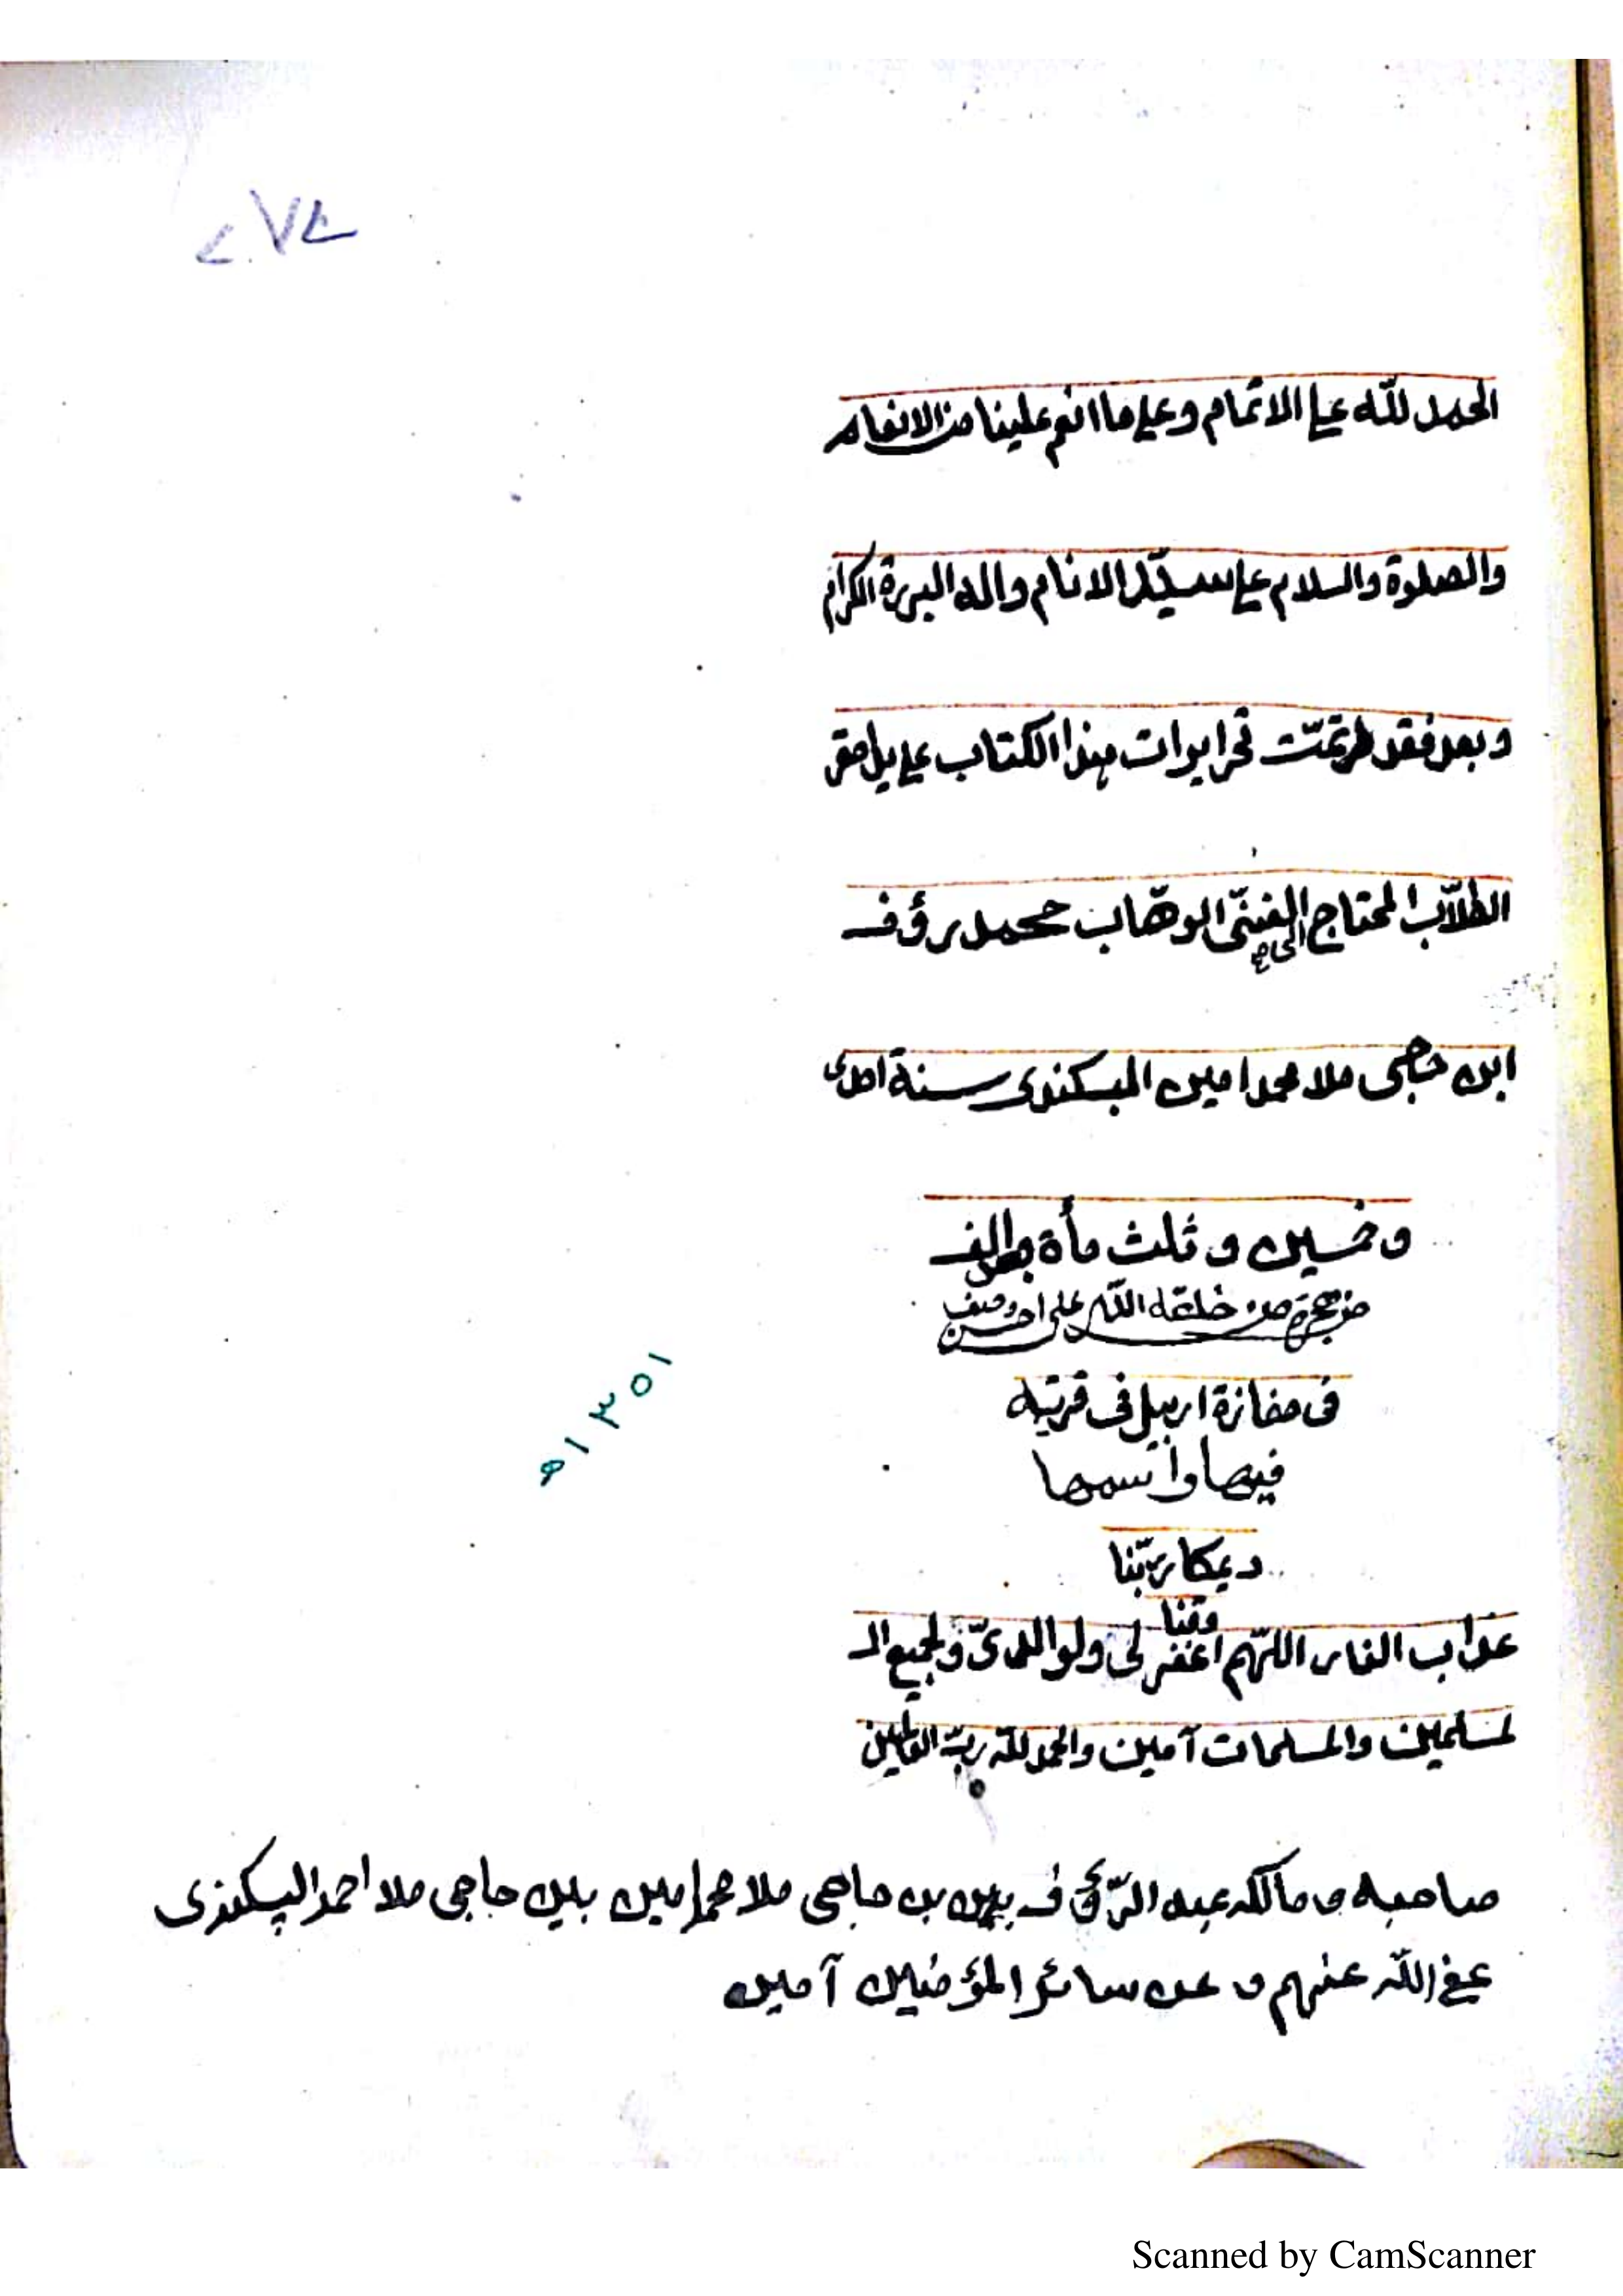 الحمد لله علي الاتمام وعلي ما انعم علينا من الانعام
والصلوة والسلام علي سيّد الانام واله البررة الكرام
وبعد فقد تمّت هذا الكتاب علي يد احقر
الطلّاب المحتاج الى الغنيّ الوهّاب محمد رؤف
ابن حاجى ملا محمد امين البسكندى سنة احدى
وخمسين و ثلث مأة والف
من هجرة من خلقه الله على احسن وصف
فى مفازة اربيل فى قرية
فيها واسمها
ديمكا ربّنا
وقنا
عذاب النار اللهم اغفر لى ولوالدىّ ولجميع الـ
لمسلمين والمسلمات آمين والحمد لله ربّ العالمين
١٣٥١ ه
صاحبه و مالكه عبد الرّؤف بن حاجى ملا محمد امين بن حاجى ملا احمد البسكندى
عفى الله عنهم و عن سائر المؤمنين آمين
Scanned by CamScanner